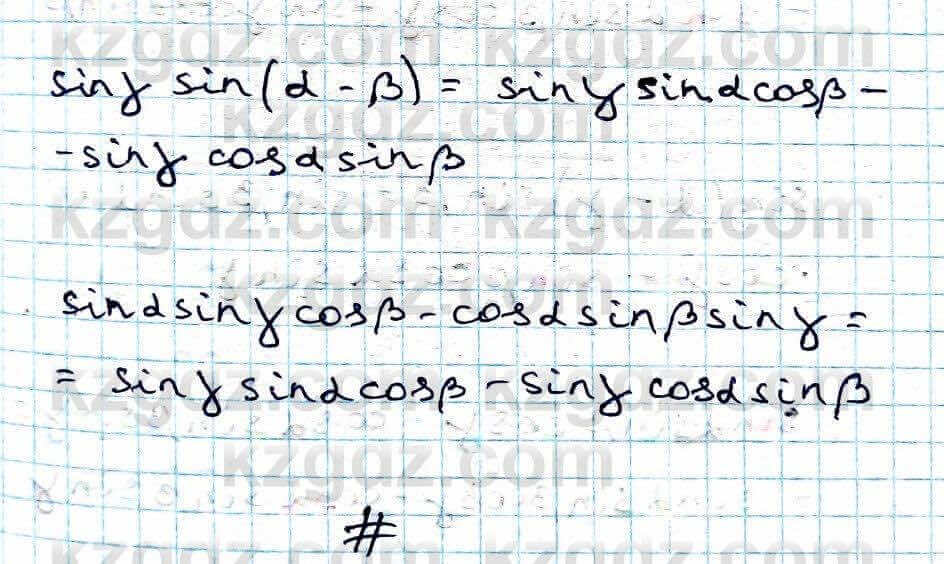 kzgdz.com kzgdz.com
sinγ sin(α - β) = sinγ sinαcosβ -
kzgdz.com
- sinγ cosα sinβ
kzgdz.com kzgdz.com
kzgdz.com
sinα sinγ cosβ - cosα sinβ sinγ =
= sinγ sinα cosβ - sinγ cosα sinβ
kzgdz.com
#
kzgdz.com kzgdz.com